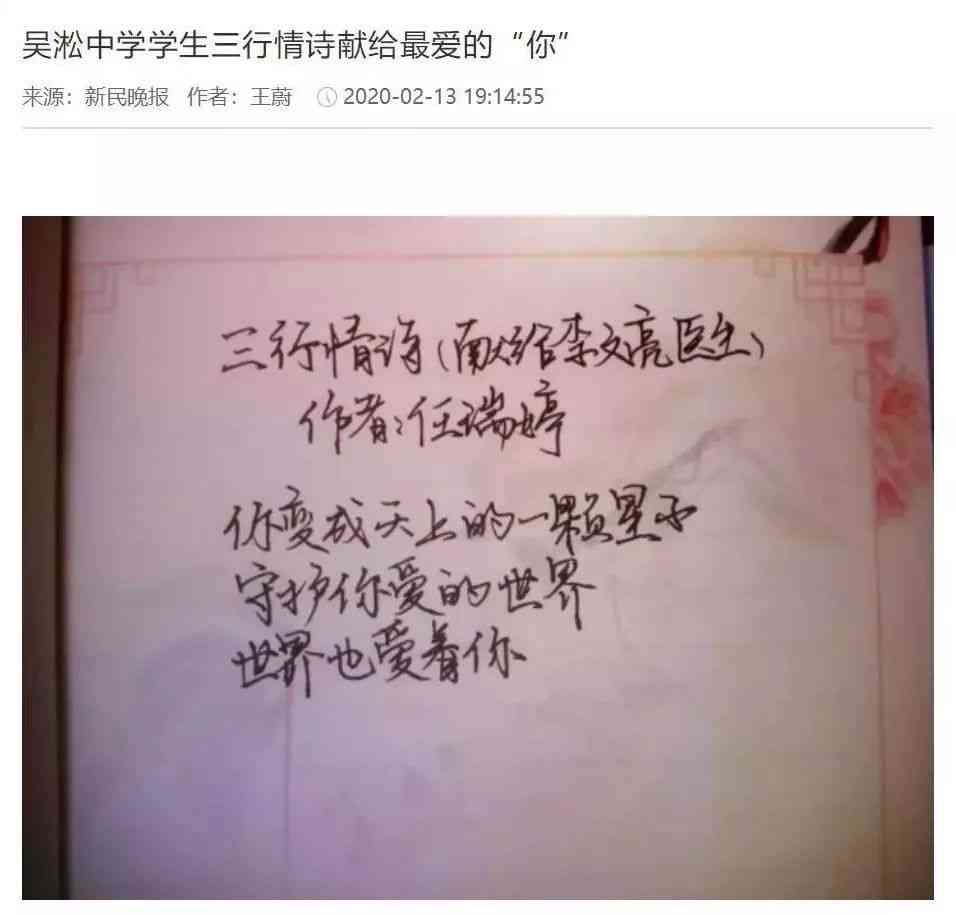 吴淞中学学生三行情诗献给最爱的“你”
来源：新民晚报 作者：王蔚 2020-02-13 19:14:55
三行情诗(献给李文亮医生)
作者:任瑞婷
你变成天上的一颗星子
守护你爱的世界
世界也爱着你